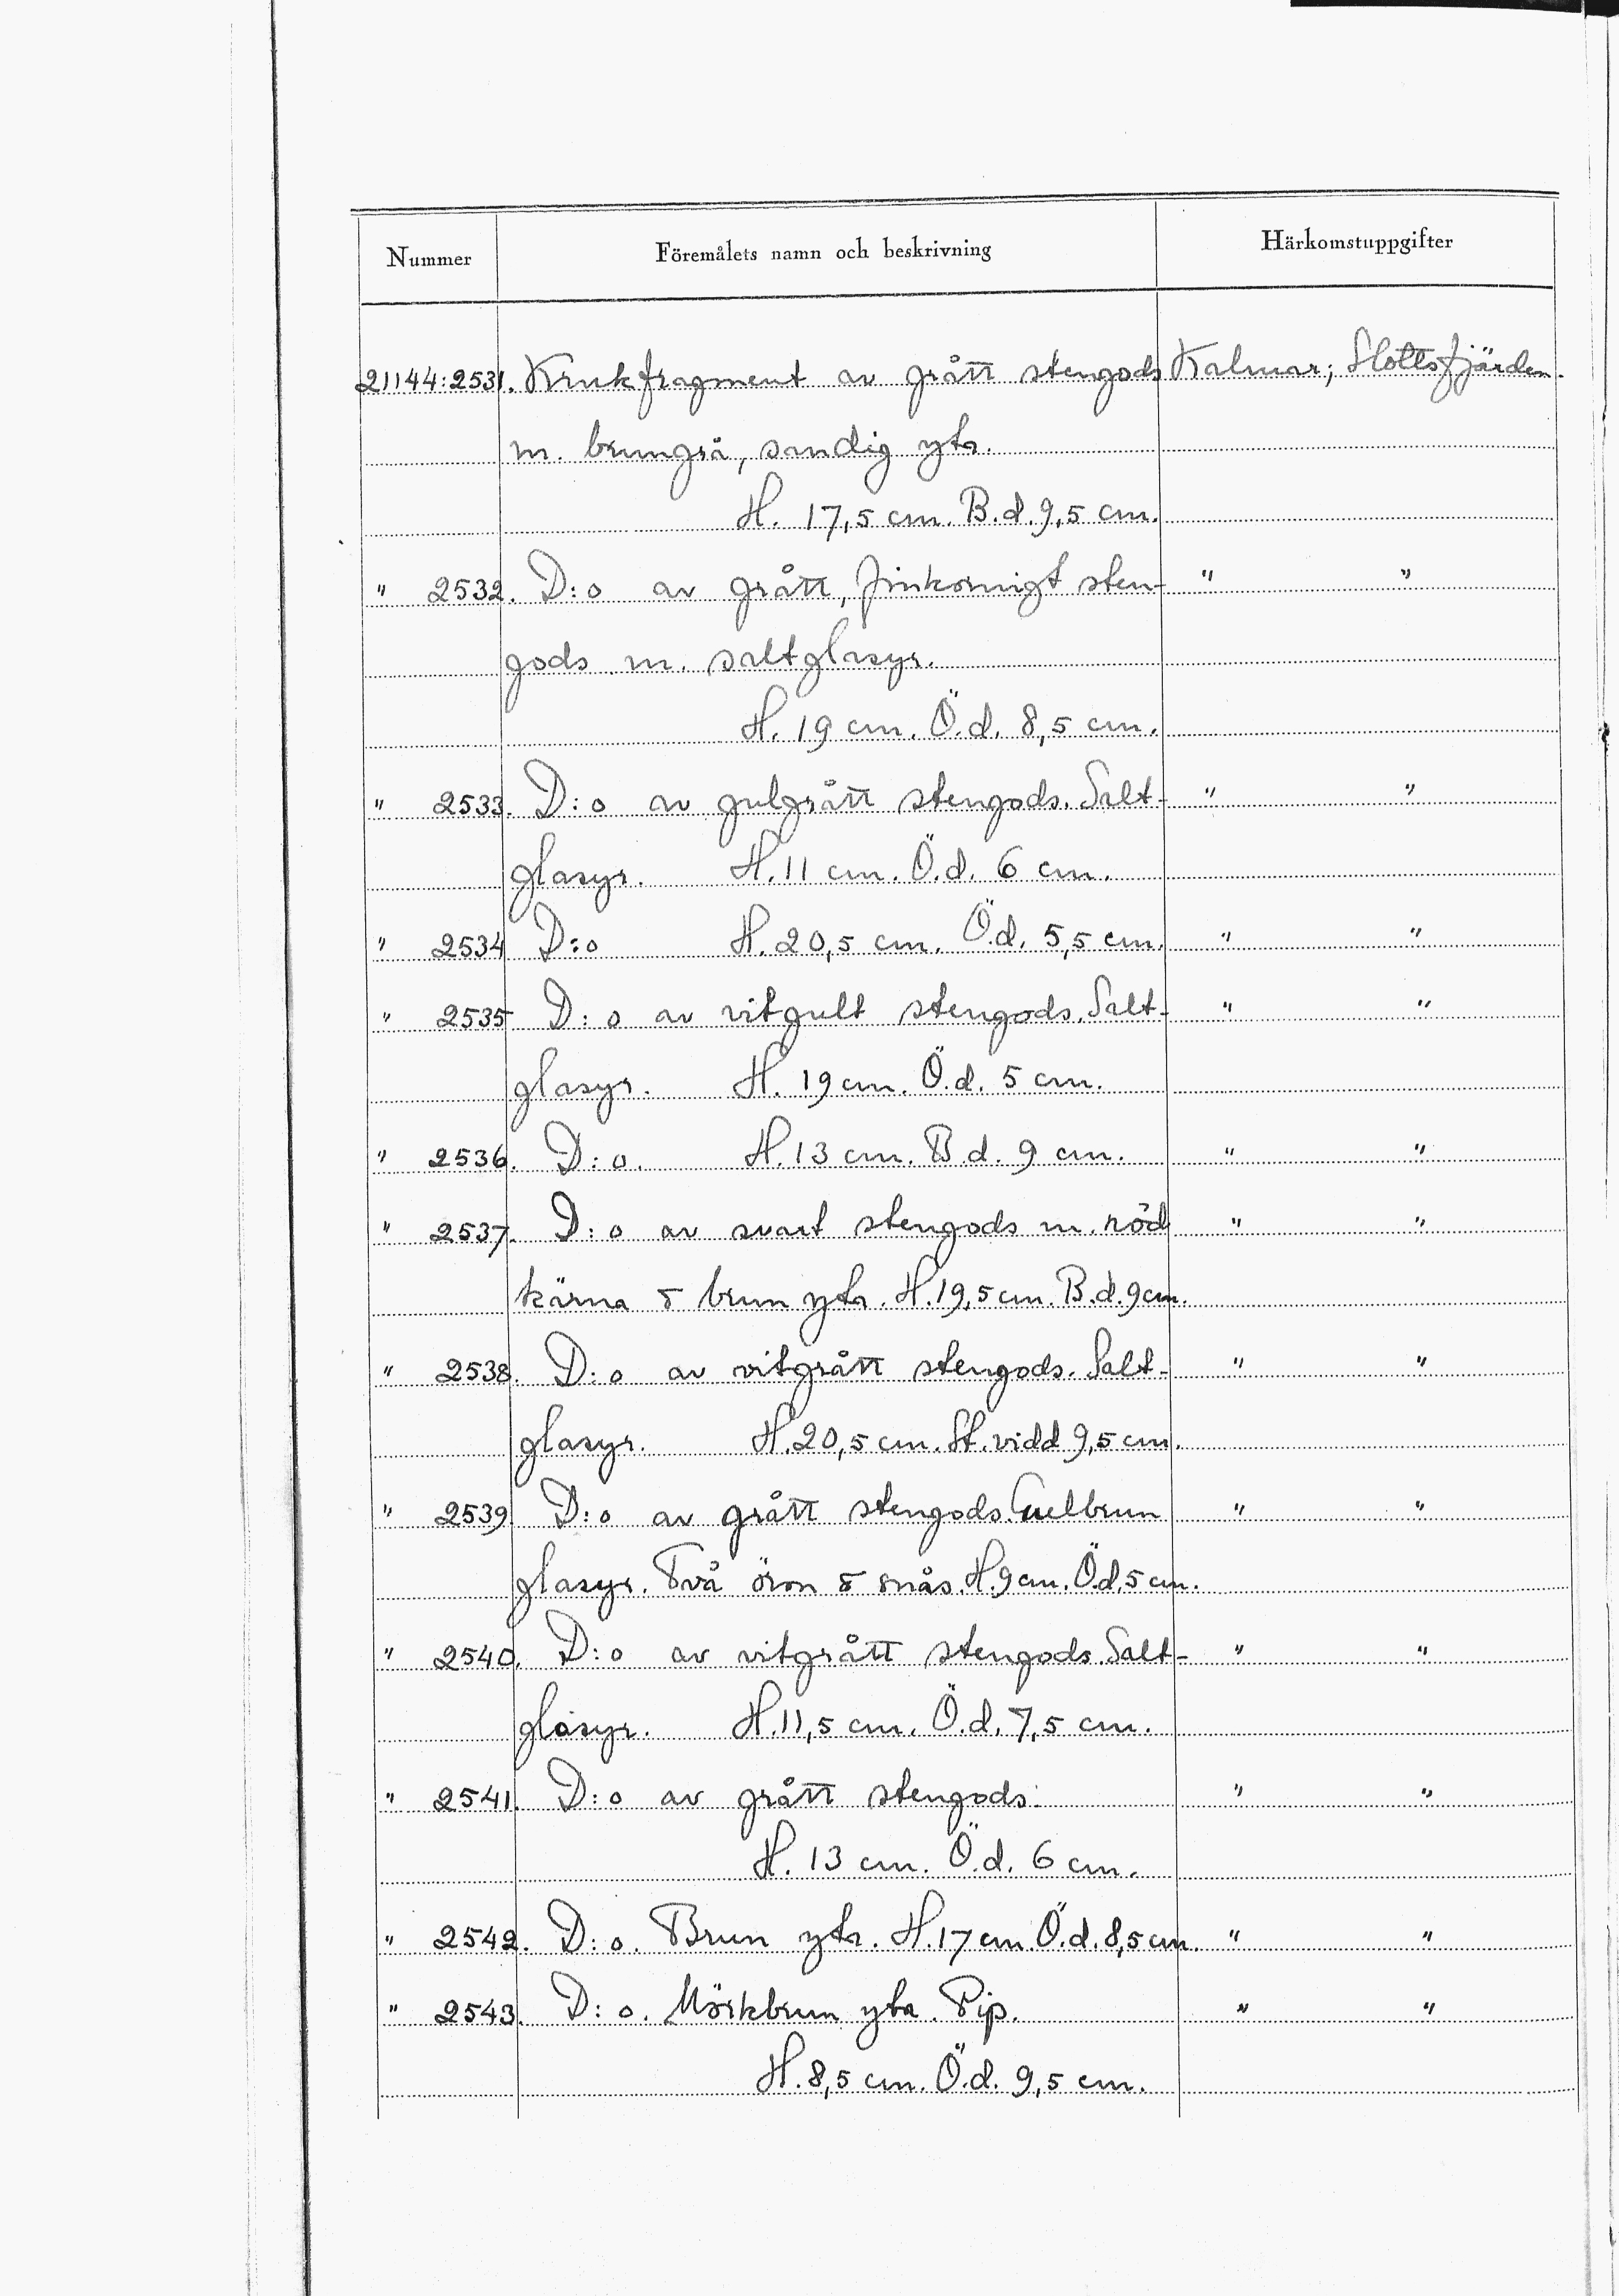 Nummer Föremålets namn och beskrivning Härkomstuppgifter
21144:2531. Krukfragment av grått stengods Kalmar; Slottsfjärden.
m. brungrå, sandig yta.
H. 17,5 cm. B.d. 9,5 cm.
" 2532. D:o av grått, finkornigt sten- " "
gods m. saltglasyr.
H. 19 cm. Ö.d. 8,5 cm.
" 2533. D:o av gulgrått stengods. Salt- " "
glasyr. H. 11 cm. Ö.d. 6 cm.
" 2534 D:o H. 20,5 cm. Ö.d. 5,5 cm. " "
" 2535 D:o av vitgult stengods. Salt- " "
glasyr. H. 19 cm. Ö.d. 5 cm.
" 2536. D:o. H. 13 cm. B.d. 9 cm. " "
" 2537. D:o av svart stengods m. röd " "
kärna & brun yta. H. 19,5 cm. B.d. 9 cm.
" 2538. D:o av vitgrått stengods. Salt- " "
glasyr. H. 20,5 cm. St. vidd 9,5 cm.
" 2539 D:o av grått stengods. Gulbrun " "
glasyr. Två öron & snås. H. 9 cm. Ö.d. 5 cm.
" 2540. D:o av vitgrått stengods. Salt- " "
glasyr. H. 11,5 cm. Ö.d. 7,5 cm.
" 2541. D:o av grått stengods. " "
H. 13 cm. Ö.d. 6 cm.
" 2542. D:o. Brun yta. H. 17 cm. Ö.d. 8,5 cm. " "
" 2543. D:o. Mörkbrun yta. Pip. " "
H. 8,5 cm. Ö.d. 9,5 cm.